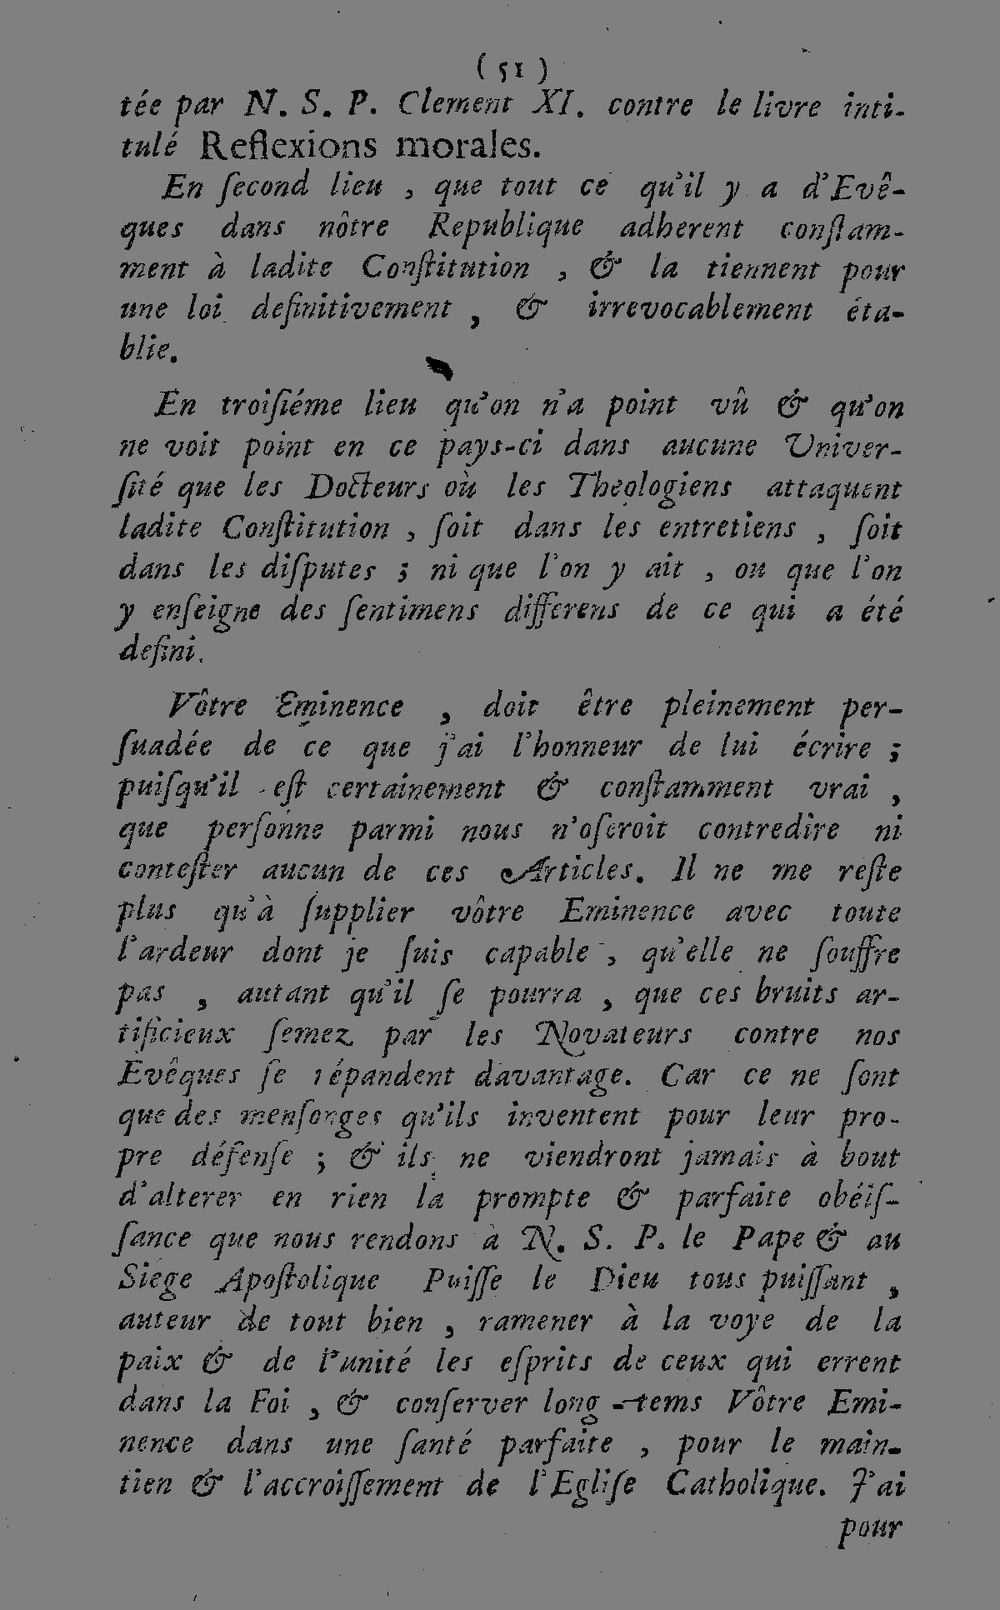 ( 51 )
tée par N. S. P. Clement XI. contre le livre inti-
tulé Reflexions morales.
En ſecond lieu , que tout ce qu'il y a d'Evê-
ques dans nôtre Republique adherent conſtam-
ment à ladite Conſtitution , & la tiennent pour
une loi definitivement , & irrevocablement éta-
blie.
En troiſiéme lieu qu'on n'a point vû & qu'on
ne voit point en ce pays-ci dans aucune Univer-
ſité que les Docteurs où les Theologiens attaquent
ladite Conſtitution , ſoit dans les entretiens , ſoit
dans les diſputes ; ni que l'on y ait , ou que l'on
y enſeigne des ſentimens differens de ce qui a été
defini.
Vôtre Eminence , doit être pleinement per-
ſuadée de ce que j'ai l'honneur de lui écrire ;
puiſqu'il eſt certainement & conſtamment vrai ,
que perſonne parmi nous n'oſeroit contredire ni
conteſter aucun de ces Articles. Il ne me reſte
plus qu'à ſupplier vôtre Eminence avec toute
l'ardeur dont je ſuis capable , qu'elle ne ſouffre
pas , autant qu'il ſe pourra , que ces bruits ar-
tificieux ſemez par les Novateurs contre nos
Evêques ſe répandent davantage. Car ce ne ſont
que des menſonges qu'ils inventent pour leur pro-
pre défenſe ; & ils ne viendront jamais à bout
d'alterer en rien la prompte & parfaite obéiſ-
ſance que nous rendons à N. S. P. le Pape & au
Siege Apoſtolique Puiſſe le Dieu tous puiſſant ,
auteur de tout bien , ramener à la voye de la
paix & de l'unité les eſprits de ceux qui errent
dans la Foi , & conſerver long-tems Vôtre Emi-
nence dans une ſanté parfaite , pour le main-
tien & l'accroiſſement de l'Egliſe Catholique. J'ai
pour